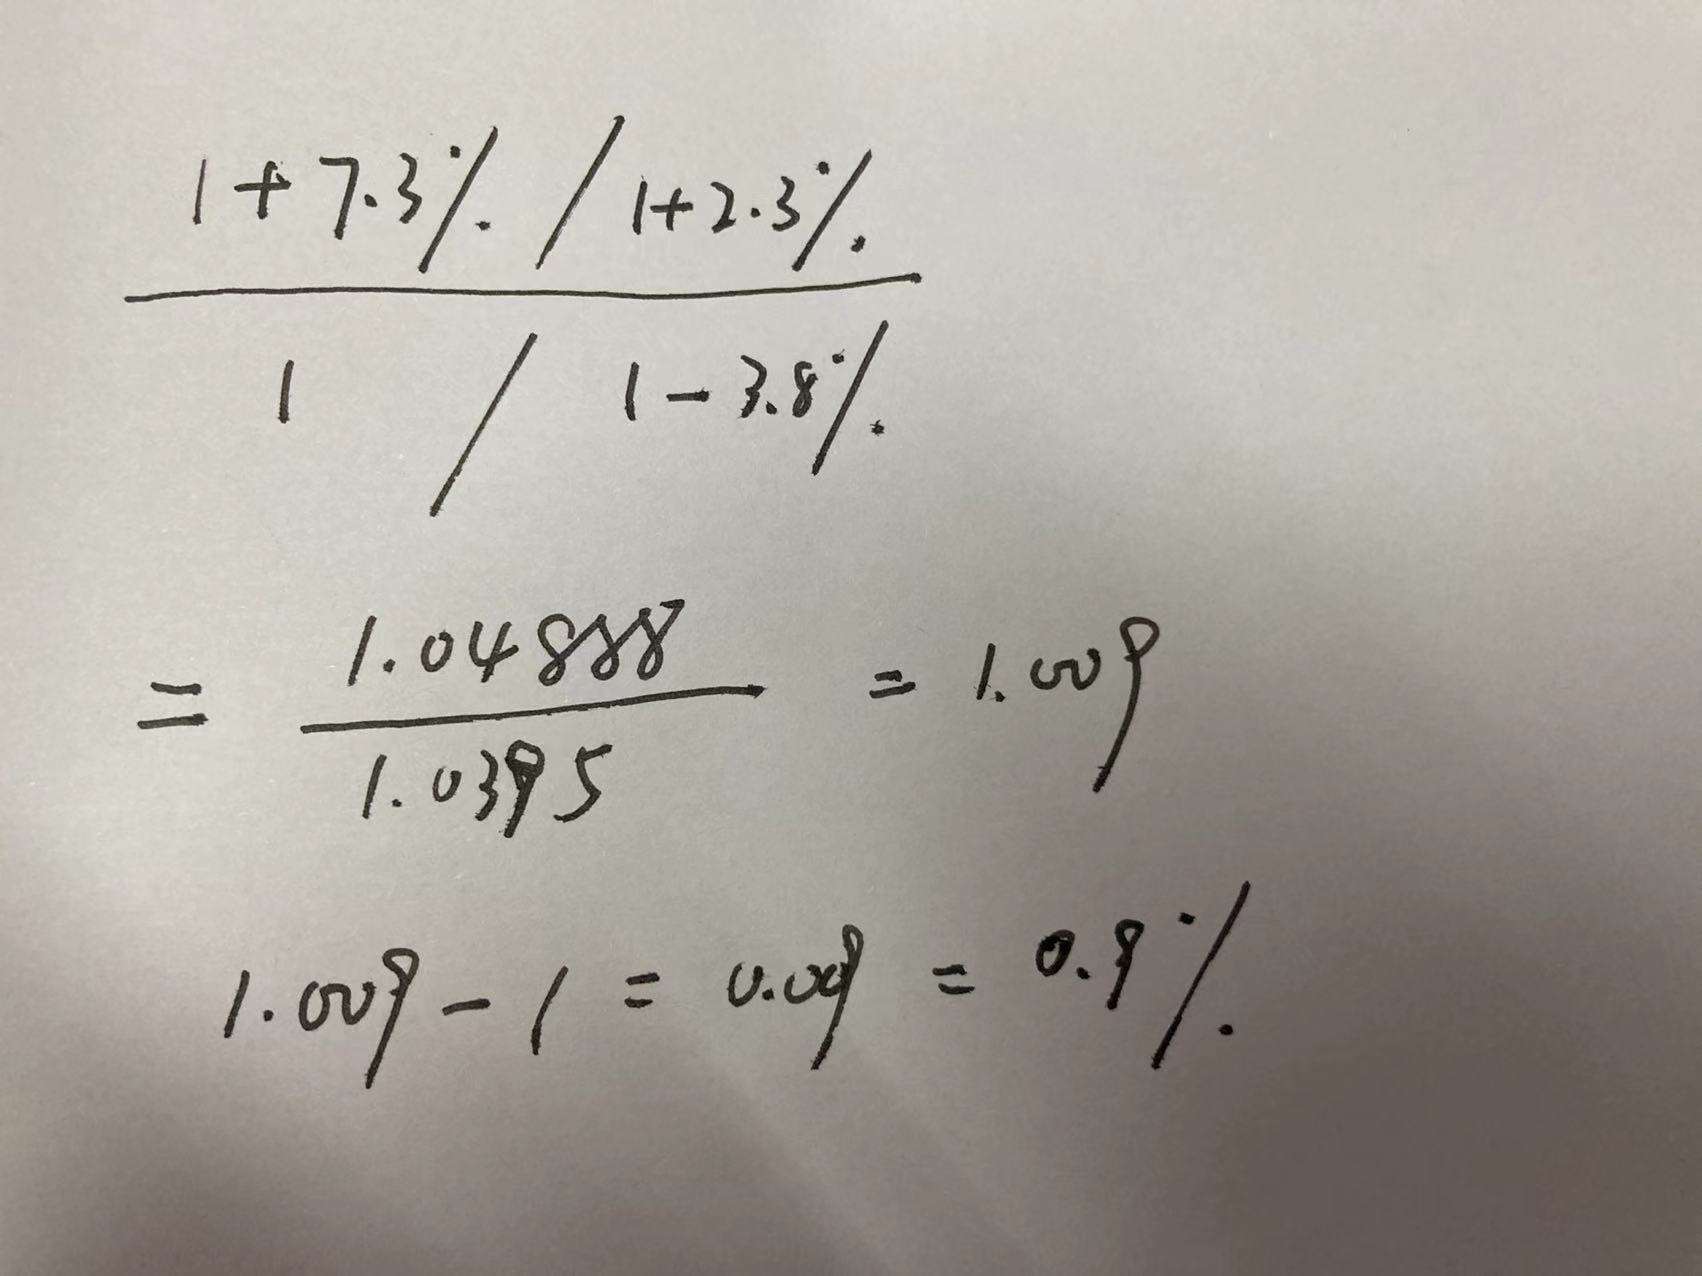 1+7.3% / 1+2.3%
1 / 1-3.8%
= 1.04888 / 1.0395 = 1.009
1.009 - 1 = 0.09 = 0.9%